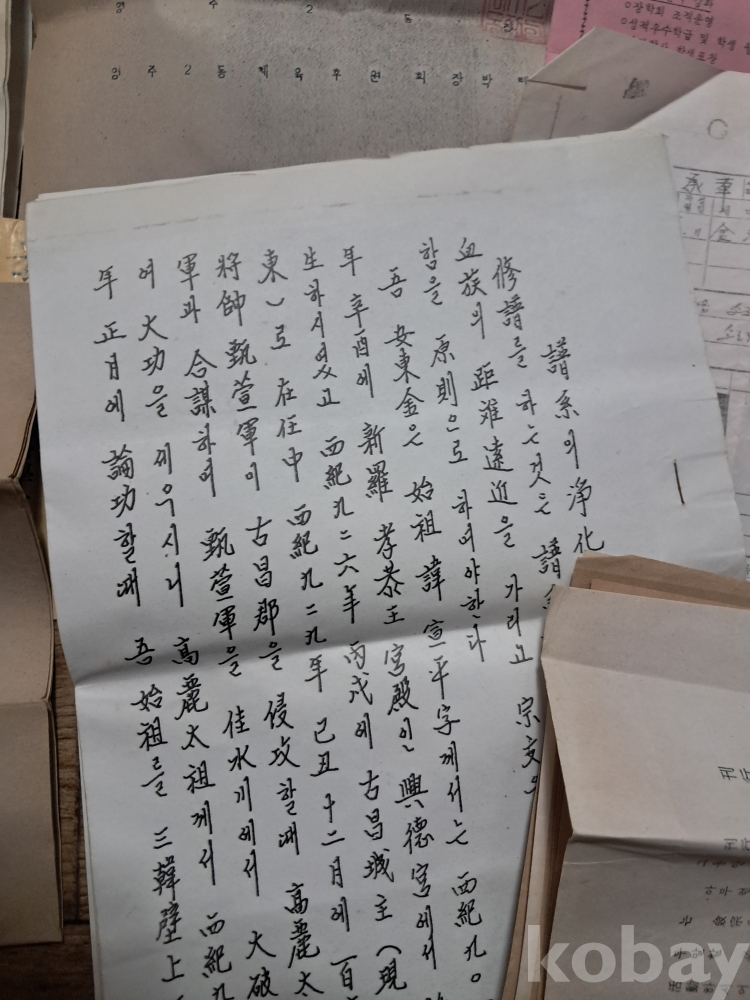 영 주 2 동
영 주 2 동 체 육 후 원 회 장 박
○장학회 조직운영
○성적우수학급 및 학생
譜系의 淨化
修譜를 하는것은 譜
血族의 距離遠近을 가리고 宗支
함을 原則으로 하여야한다
吾 安東金은 始祖 諱 宣平字께서는 西紀九○
年 辛酉에 新羅 孝恭王 宮殿인 興德宮에서
生하시였고 西紀九二六年 丙戌에 古昌城主(現
東)로 在任中 西紀九二九年 己丑 十二月에 百
將帥 甄萱軍이 古昌郡을 侵攻할때 高麗太
軍과 合謀하여 甄萱軍을 佳水기에서 大破
여 大功을 세우시니 高麗太祖께서 西紀九
年 正月에 論功할때 吾 始祖를 三韓壁上
kobay